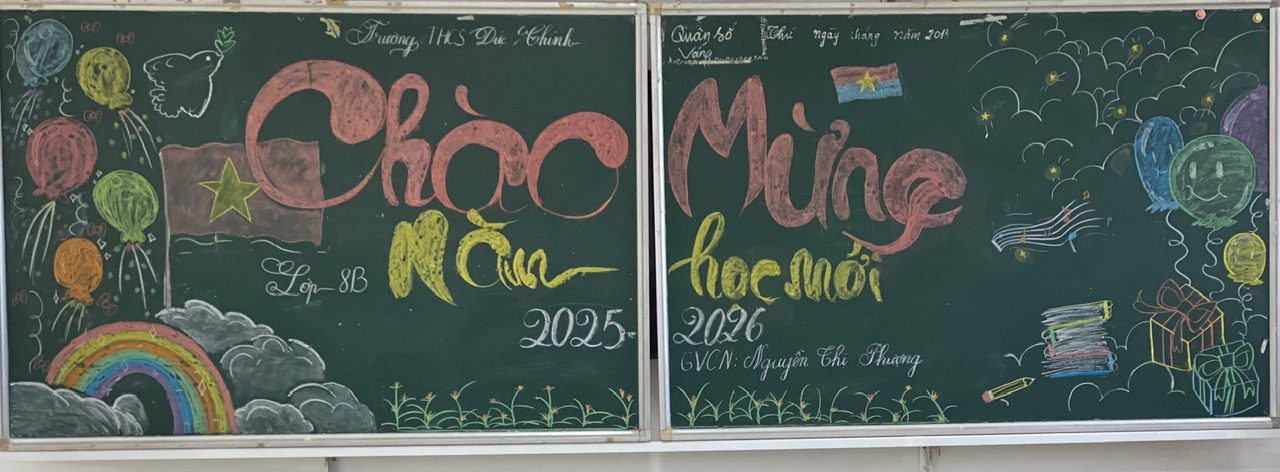 Trường THCS Đức Chính
Chào
Năm
Lớp 8B
2025-
Quân số
Vắng
Thứ ngày tháng năm 201
Mừng
học mới
2026
GVCN: Nguyễn Thị Phương